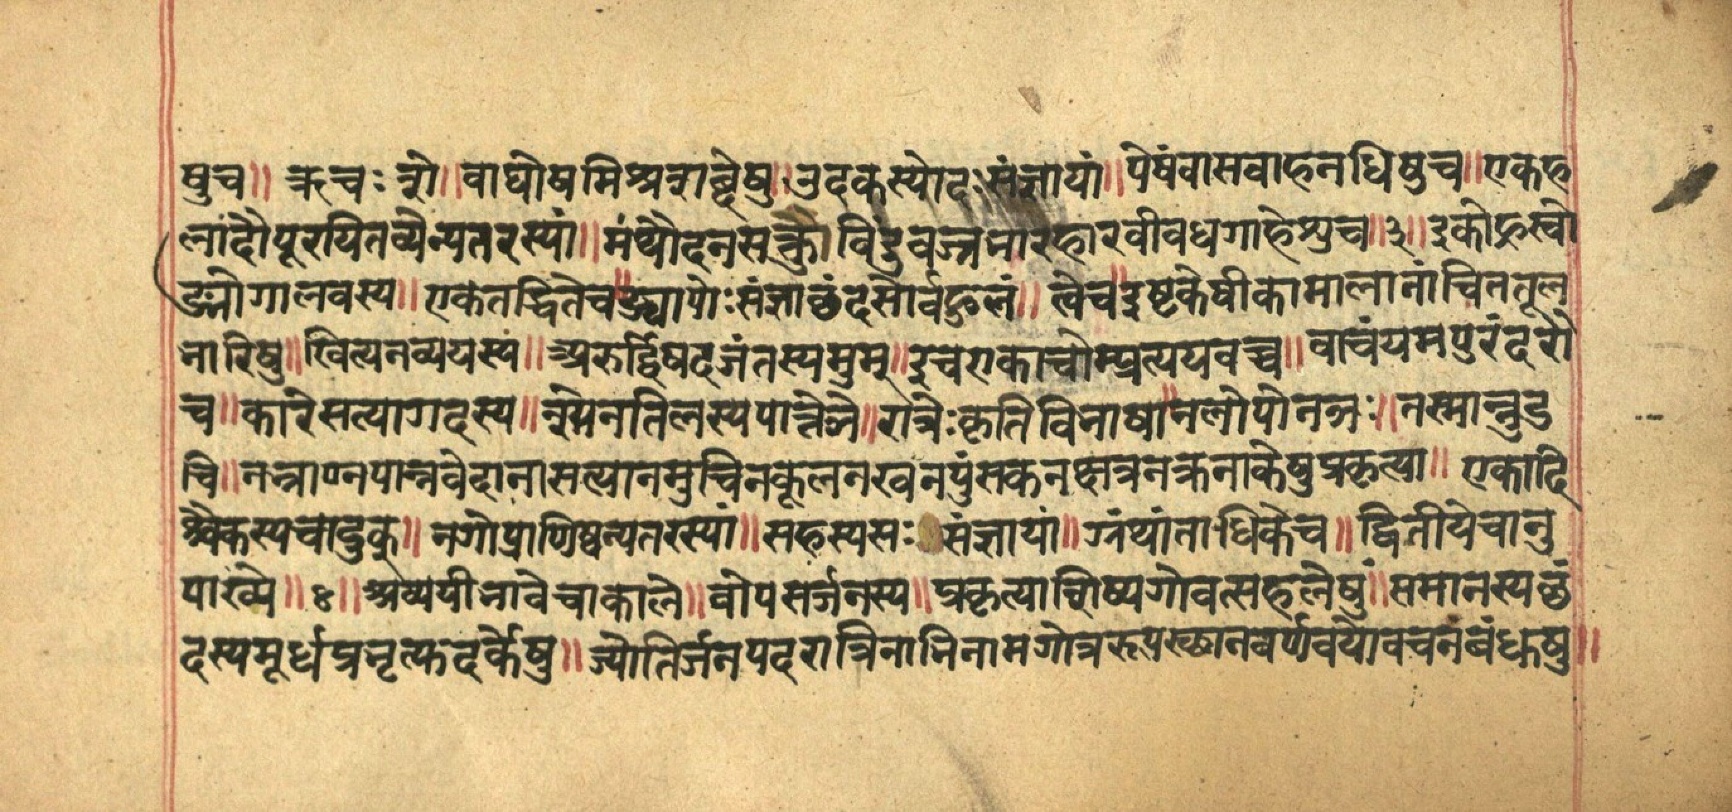 षुच॥ ऋचः शे॥ वाघोषमिश्रशब्देषु॥ उदकस्योदः संज्ञायां॥ पेषंवासवाहनधिषुच॥ एकह
लादौपूरयितव्येन्यतरस्यां॥ मंथौदनसक्तुविंदुवज्रभारहारवीवधगाहेषुच॥३॥ इकोह्रस्वो
ङ्योगालवस्य॥ एकतद्धितेच॥ ङ्यापोः संज्ञाछंदसोर्बहुलं॥ त्वेच॥ इष्टकेषीकामालानांचिततूल
भारिषु॥ खित्यनव्ययस्य॥ अरुर्द्विषदजंतस्यमुम्॥ इचएकाचोम्प्रत्ययवच्च॥ वाचंयमपुरंदरौ
च॥ कारेसत्यागदस्य॥ श्येनतिलस्यपातेञे॥ रात्रेः कृतिविभाषा॥ नलोपोनञः॥ तस्मान्नुड
चि॥ नभ्राण्नपान्नवेदानासत्यानमुचिनकुलनखनपुंसकनक्षत्रनक्रनाकेषुप्रकृत्या॥ एकादि
श्चैकस्यचादुक्॥ नगोप्राणिष्वन्यतरस्यां॥ सहस्यसः संज्ञायां॥ ग्रंथांताधिकेच॥ द्वितीयेचानु
पाख्ये॥४॥ अव्ययीभावेचाकाले॥ वोपसर्जनस्य॥ प्रकृत्याशिष्यगोवत्सहलेषु॥ समानस्यछं
दस्यमूर्धप्रभृत्युदर्केषु॥ ज्योतिर्जनपदरात्रिनाभिनामगोत्ररूपस्थानवर्णवयोवचनबंधुषु॥